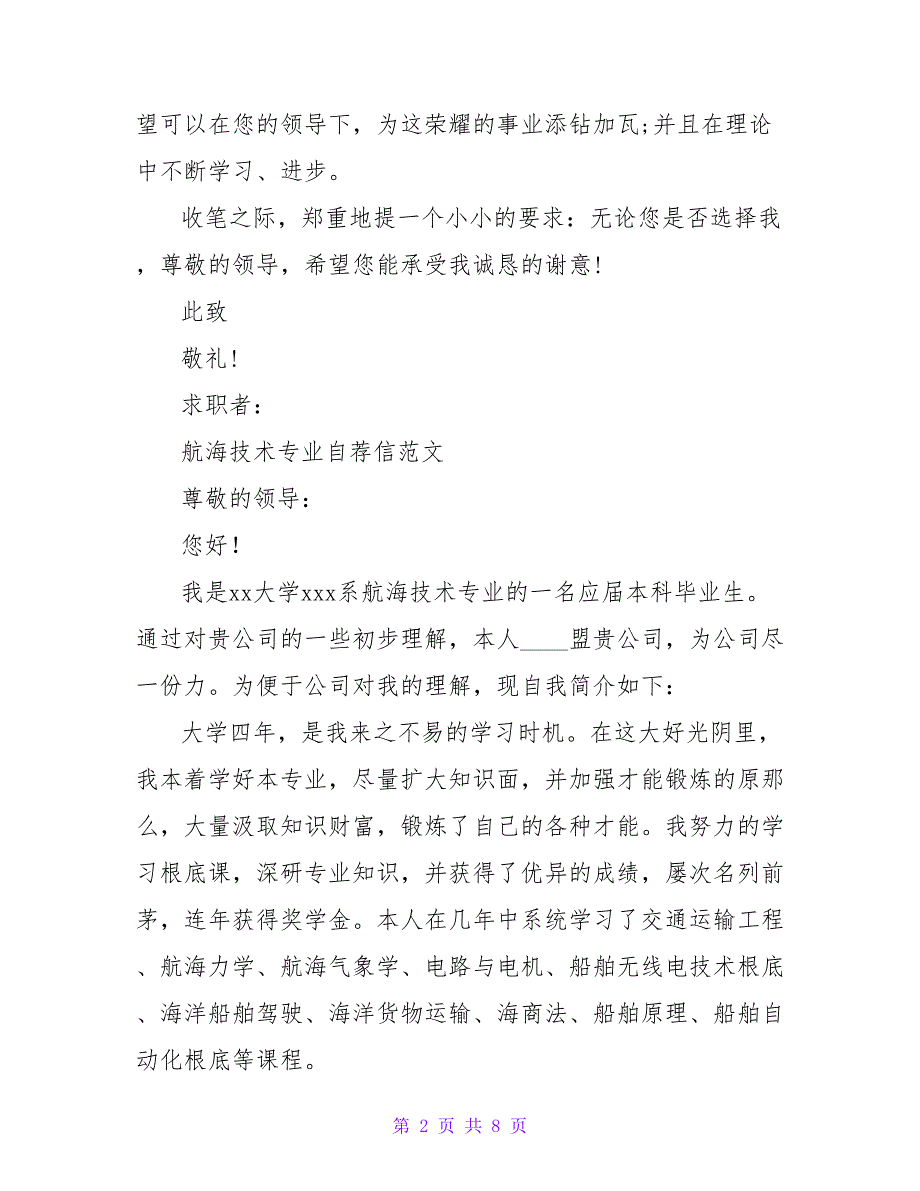 望可以在您的领导下，为这荣耀的事业添钻加瓦;并且在理论
中不断学习、进步。
收笔之际，郑重地提一个小小的要求：无论您是否选择我
，尊敬的领导，希望您能承受我诚恳的谢意!
此致
敬礼!
求职者：
航海技术专业自荐信范文
尊敬的领导：
您好！
我是xx大学xxx系航海技术专业的一名应届本科毕业生。
通过对贵公司的一些初步理解，本人____盟贵公司，为公司尽
一份力。为便于公司对我的理解，现自我简介如下：
大学四年，是我来之不易的学习时机。在这大好光阴里，
我本着学好本专业，尽量扩大知识面，并加强才能锻炼的原那
么，大量汲取知识财富，锻炼了自己的各种才能。我努力的学
习根底课，深研专业知识，并获得了优异的成绩，屡次名列前
茅，连年获得奖学金。本人在几年中系统学习了交通运输工程
、航海力学、航海气象学、电路与电机、船舶无线电技术根底
、海洋船舶驾驶、海洋货物运输、海商法、船舶原理、船舶自
动化根底等课程。
第 2 页 共 8 页